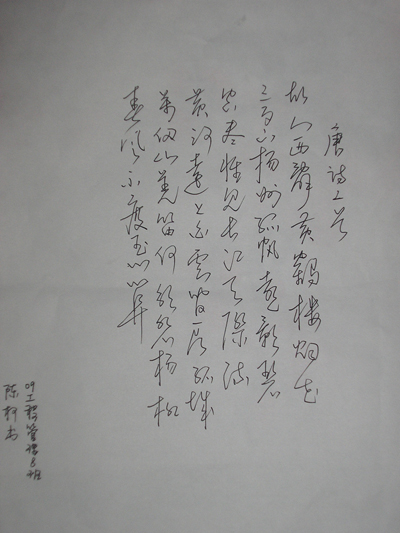 唐诗二首
故人西辞黄鹤楼烟花
三月下扬州孤帆远影碧
空尽惟见长江天际流
黄河远上白云间一片孤城
万仞山羌笛何须怨杨柳
春风不度玉门关
09工程管理8班
陈轩书